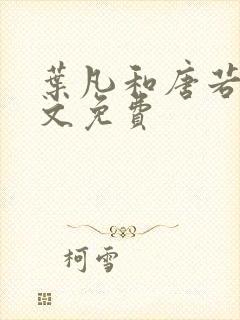 葉凡和唐若
文免費
柯雪